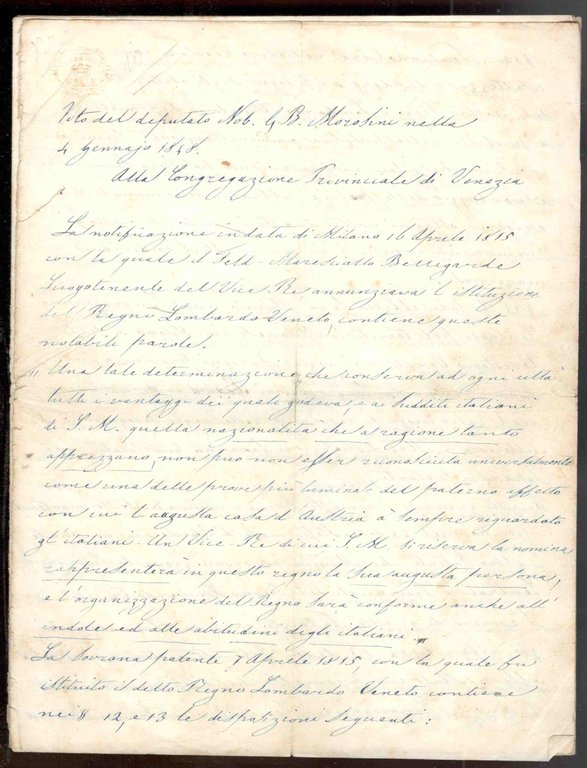 Voto del deputato Nob. G. B. Morosini nella
4 Gennajo 1848.
Alla Congregazione Provinciale di Venezia
La notificazione in data di Milano 16 Aprile 1815
con la quale il Feld-Maresciallo Bellegarde
Luogotenente del Vice Re annunziava l'istituzione
del Regno Lombardo Veneto, contiene queste
notabili parole.
„ Una tale determinazione che conserva ad ogni città
tutti i vantaggi dei quali godeva, e ai sudditi italiani
di S. M. quella nazionalità che a ragione tanto
apprezzano, non può non esser riconosciuta universalmente
come una delle prove più luminose del paterno affetto
con cui l'augusta casa d'Austria à sempre reguardato
gl'italiani. Un Vice Re di cui S. M. si riserva la nomina
rappresenterà in questo regno la sua augusta persona,
e l'organizzazione del Regno sarà conforme anche all'
indole ed alle abitudini degli italiani „
La Sovrana patente 7 Aprile 1815, con la quale fu
istituito il detto Regno Lombardo Veneto contiene
nei § 12, e 13 le disposizioni seguenti: